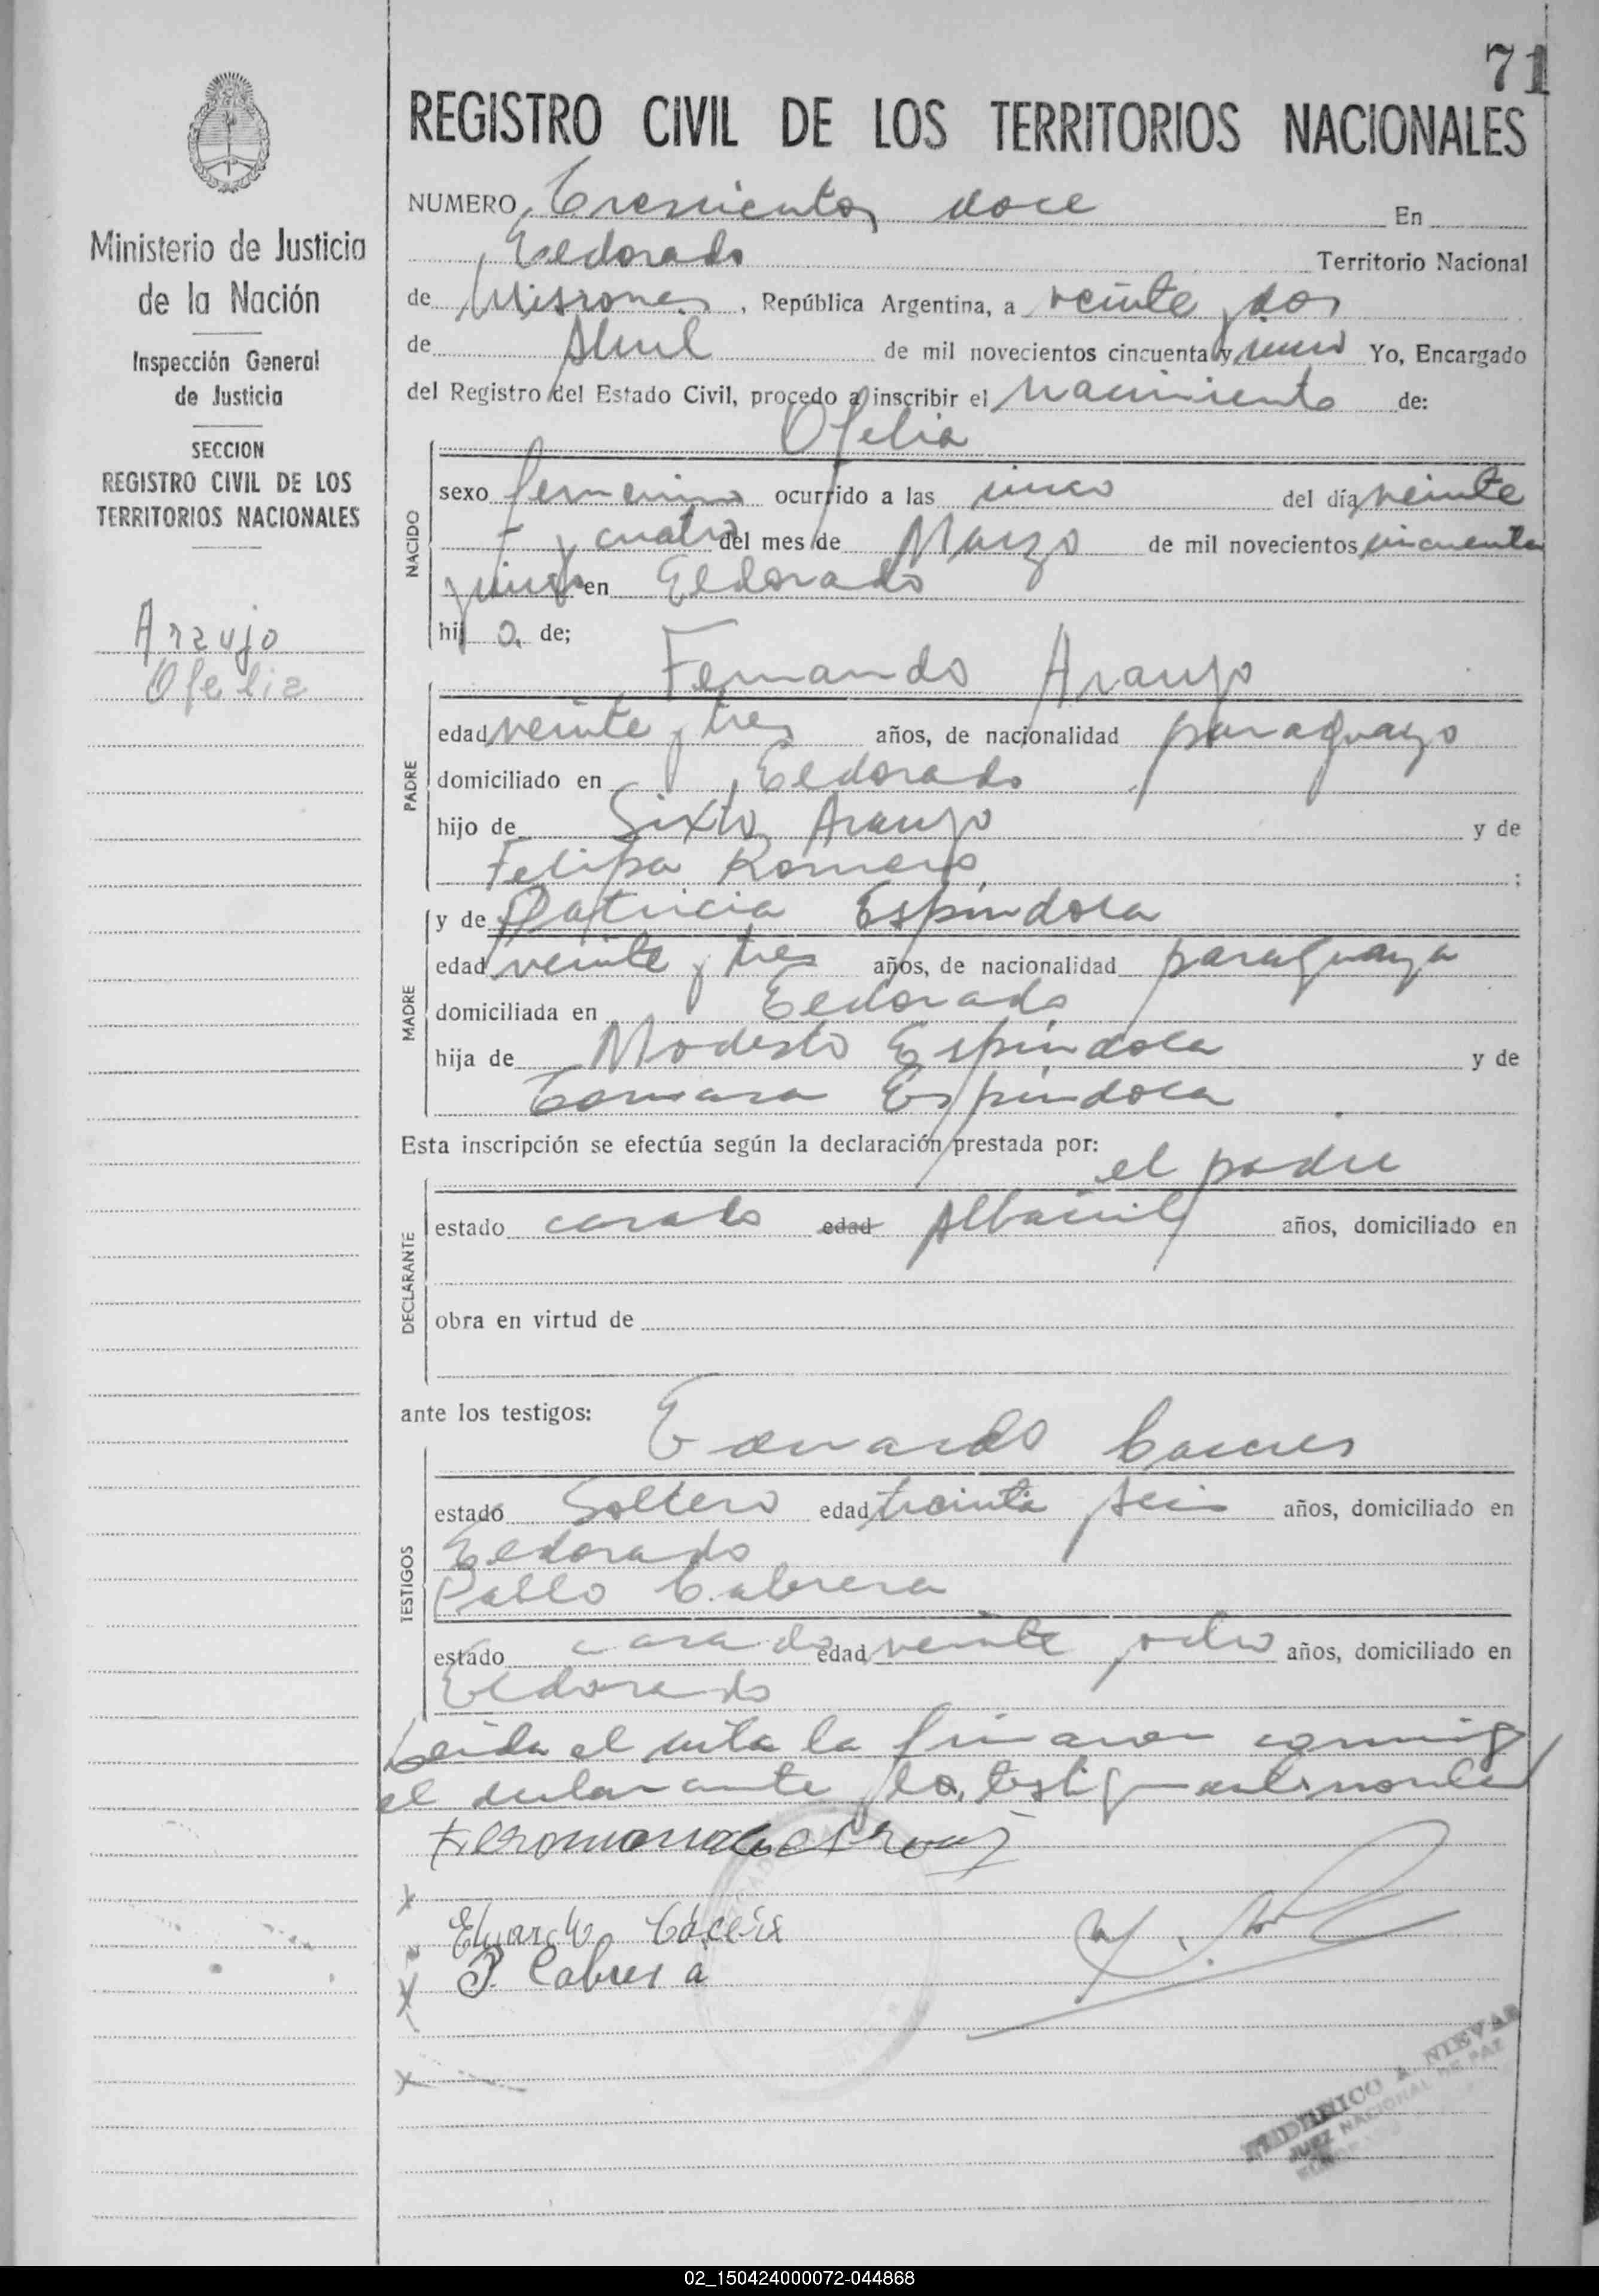 71
REGISTRO CIVIL DE LOS TERRITORIOS NACIONALES
Ministerio de Justicia
de la Nación
Inspección General
de Justicia
SECCION
REGISTRO CIVIL DE LOS
TERRITORIOS NACIONALES
Araujo
Ofelia
NUMERO Trescientos doce En
Eldorado Territorio Nacional
de Misiones, República Argentina, a veinte y dos
de Abril de mil novecientos cincuenta y uno Yo, Encargado
del Registro del Estado Civil, procedo a inscribir el nacimiento de:
Ofelia
NACIDO
sexo femenino ocurrido a las cinco del día veinte
y cuatro del mes de Marzo de mil novecientos cincuenta
y uno en Eldorado
hija de;
Fernando Araujo
PADRE
edad veinte y tres años, de nacionalidad paraguayo
domiciliado en Eldorado
hijo de Sixto Araujo y de
Felipa Romero ;
MADRE
y de Patricia Espindola
edad veinte y tres años, de nacionalidad paraguaya
domiciliada en Eldorado
hija de Modesto Espindola y de
Tomasa Espindola
Esta inscripción se efectúa según la declaración prestada por:
el padre
DECLARANTE
estado casado edad Albañil años, domiciliado en
obra en virtud de
ante los testigos:
Eduardo Caceres
TESTIGOS
estado Soltero edad treinta y seis años, domiciliado en
Eldorado
Pablo Cabrera
estado casado edad veinte y ocho años, domiciliado en
Eldorado
Leida el acta la firmaron conmigo
el declarante y los testigos
Eduardo Cáceres
P. Cabrera
FEDERICO A. NIEVAS
JUEZ NACIONAL DE PAZ
02_150424000072-044868